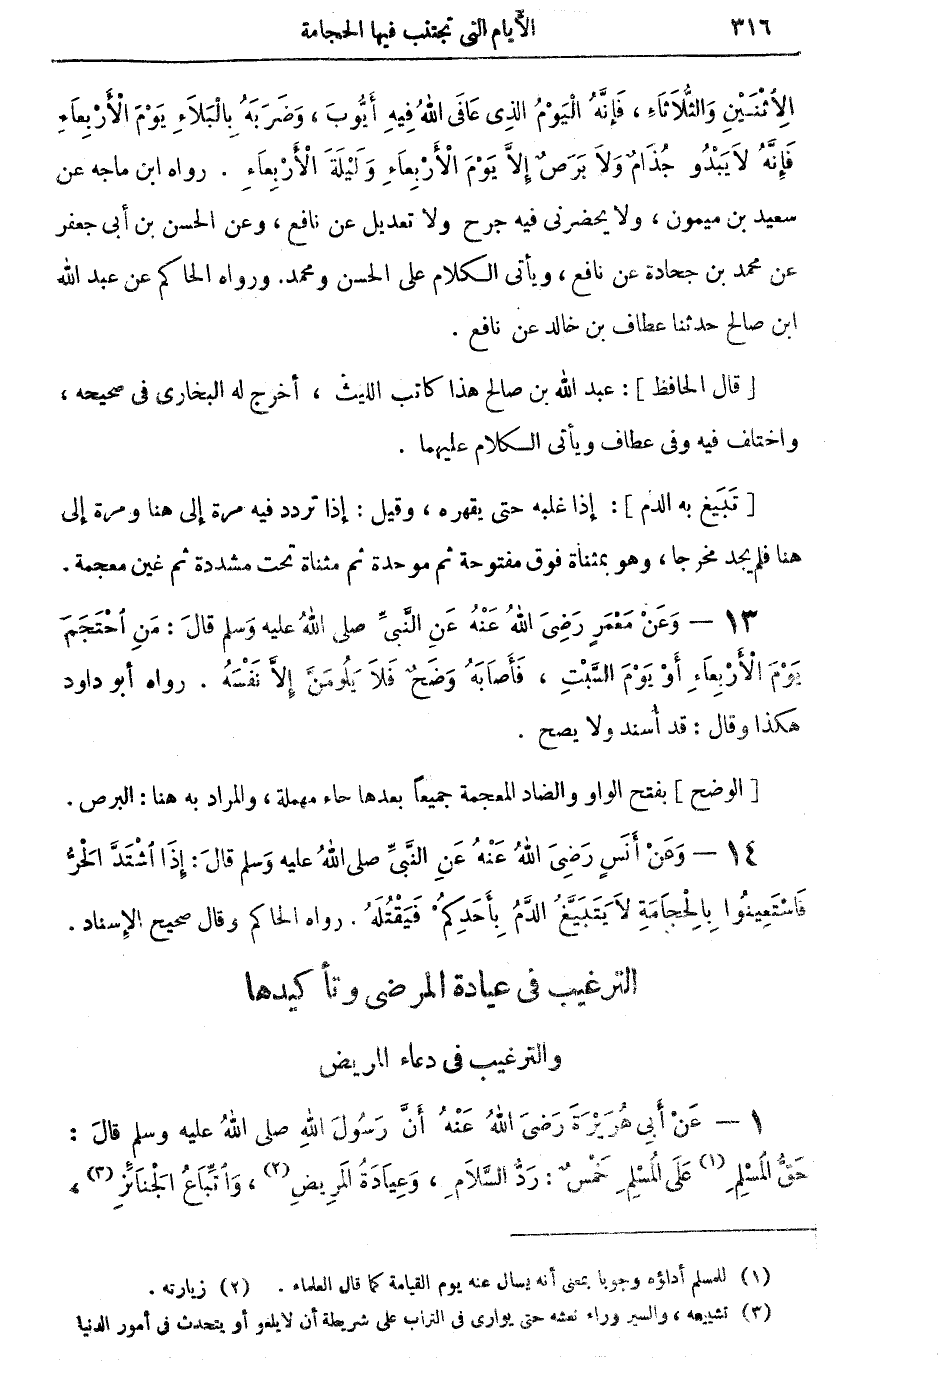 ٣١٦ الأيام التى تجتنب فيها الحجامة
الِاثْنَيْنِ وَالثُّلَاثَاءِ ، فَإِنَّهُ الْيَوْمُ الذِى عَافَى اللهُ فِيهِ أَيُّوبَ ، وَضَرَبَهُ بِالْبَلَاءِ يَوْمَ الْأَرْبِعَاءِ
فَإِنَّهُ لَا يَبْدُو جُذَامٌ وَلَا بَرَصٌ إِلاَّ يَوْمَ الْأَرْبِعَاءِ وَلَيْلَةَ الْأَرْبِعَاءِ . رواه ابن ماجه عن
سعيد بن ميمون ، ولا يحضرنى فيه جرح ولا تعديل عن نافع ، وعن الحسن بن أبى جعفر
عن محمد بن جحادة عن نافع ، ويأتى الكلام على الحسن ومحمد. ورواه الحاكم عن عبد الله
ابن صالح حدثنا عطاف بن خالد عن نافع .
[ قال الحافظ ] : عبد الله بن صالح هذا كاتب الليث ، أخرج له البخارى فى صحيحه ،
واختلف فيه وفى عطاف ويأتى الكلام عليهما .
[ تَبَيغ به الدم ] : إذا غلبه حتى يقهره ، وقيل : إذا تردد فيه مرة إلى هنا ومرة إلى
هنا فلم يجد مخرجا ، وهو بمثناة فوق مفتوحة ثم موحدة ثم مثناة تحت مشددة ثم غين معجمة .
١٣ — وَعَنْ مَعْمَرٍ رَضِىَ اللهُ عَنْهُ عَنِ النَّبِىِّ صلى اللهُ عليه وَسلم قالَ : مَنِ احْتَجَمَ
يَوْمَ الْأَرْبِعَاءِ أَوْ يَوْمَ السَّبْتِ ، فَأَصَابَهُ وَضَحٌ فَلاَ يَلُومَنَّ إِلاَّ نَفْسَهُ . رواه أبو داود
هكذا وقال : قد أُسند ولا يصح .
[ الوضح ] بفتح الواو والضاد المعجمة جميعاً بعدها حاء مهملة ، والمراد به هنا : البرص .
١٤ — وَعَنْ أَنَسٍ رَضِىَ اللهُ عَنْهُ عَنِ النَّبِىِّ صلى اللهُ عليه وَسلم قالَ : إِذَا اشْتَدَّ الْحَرُّ
فَاسْتَعِينُوا بِالْحِجَامَةِ لاَ يَتَبَيَّغُ الدَّمُ بِأَحَدِكُمْ فَيَقْتُلَهُ . رواه الحاكم وقال صحيح الإسناد .
الترغيب فى عيادة المرضى وتأكيدها
والترغيب فى دعاء المريض
١ — عَنْ أَبِى هُرَيْرَةَ رَضِىَ اللهُ عَنْهُ أَنَّ رَسُولَ اللهِ صلى اللهُ عليه وسلم قالَ :
حَقُّ الْمُسْلِمِ (١) عَلَى الْمُسْلِمِ خَمْسٌ : رَدُّ السَّلَامِ ، وَعِيَادَةُ الْمَرِيضِ (٢) ، وَاتِّبَاعُ الْجَنَائِزِ (٣) ،
(١) للمسلم أداؤه وجوبا بمعنى أنه يسأل عنه يوم القيامة كما قال العلماء . (٢) زيارته .
(٣) تشييعه ، والسير وراء نعشه حتى يوارى فى التراب على شريطة أن لا يلغو أو يتحدث فى أمور الدنيا